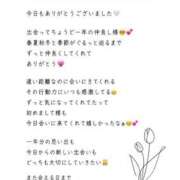 今日もありがとうございました🤍
出会ってちょうど一年の仲良し様🥹💕
春夏秋冬と季節がぐるっと廻るまで
ずっと仲良くしてくれて
ありがとう💗
遠い距離なのに会いにきてくれる
その行動力にいつも感謝してる🥹💕
ずっと気になってくれてたって
初めまして様も
今日会いに来てくれて嬉しかったなぁ🥹💕
一年分の思い出も
今日からの新しい出会いも
どっちも大切にしていきたい🤗
また会える日まで